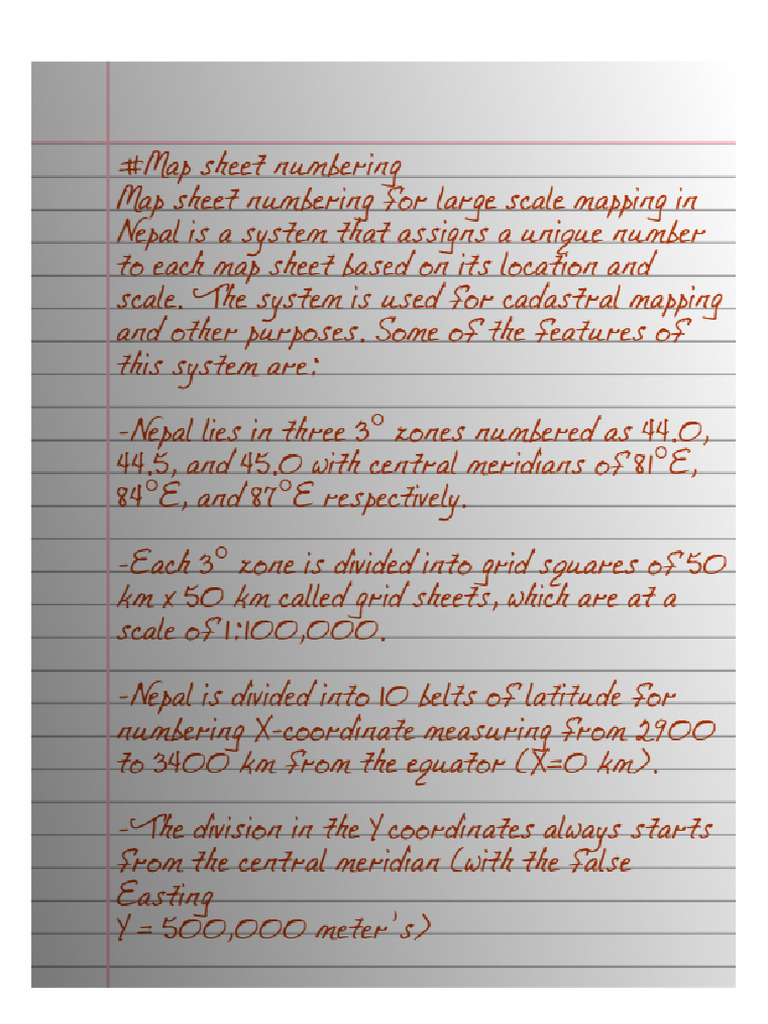 #Map sheet numbering
Map sheet numbering for large scale mapping in
Nepal is a system that assigns a unique number
to each map sheet based on its location and
scale. The system is used for cadastral mapping
and other purposes. Some of the features of
this system are:
-Nepal lies in three 3° zones numbered as 44.0,
44.5, and 45.0 with central meridians of 81°E,
84°E, and 87°E respectively.
-Each 3° zone is divided into grid squares of 50
km x 50 km called grid sheets, which are at a
scale of 1:100,000.
-Nepal is divided into 10 belts of latitude for
numbering X-coordinate measuring from 2900
to 3400 km from the equator (X=0 km).
-The division in the Y coordinates always starts
from the central meridian (with the false
Easting
Y = 500,000 meter's)